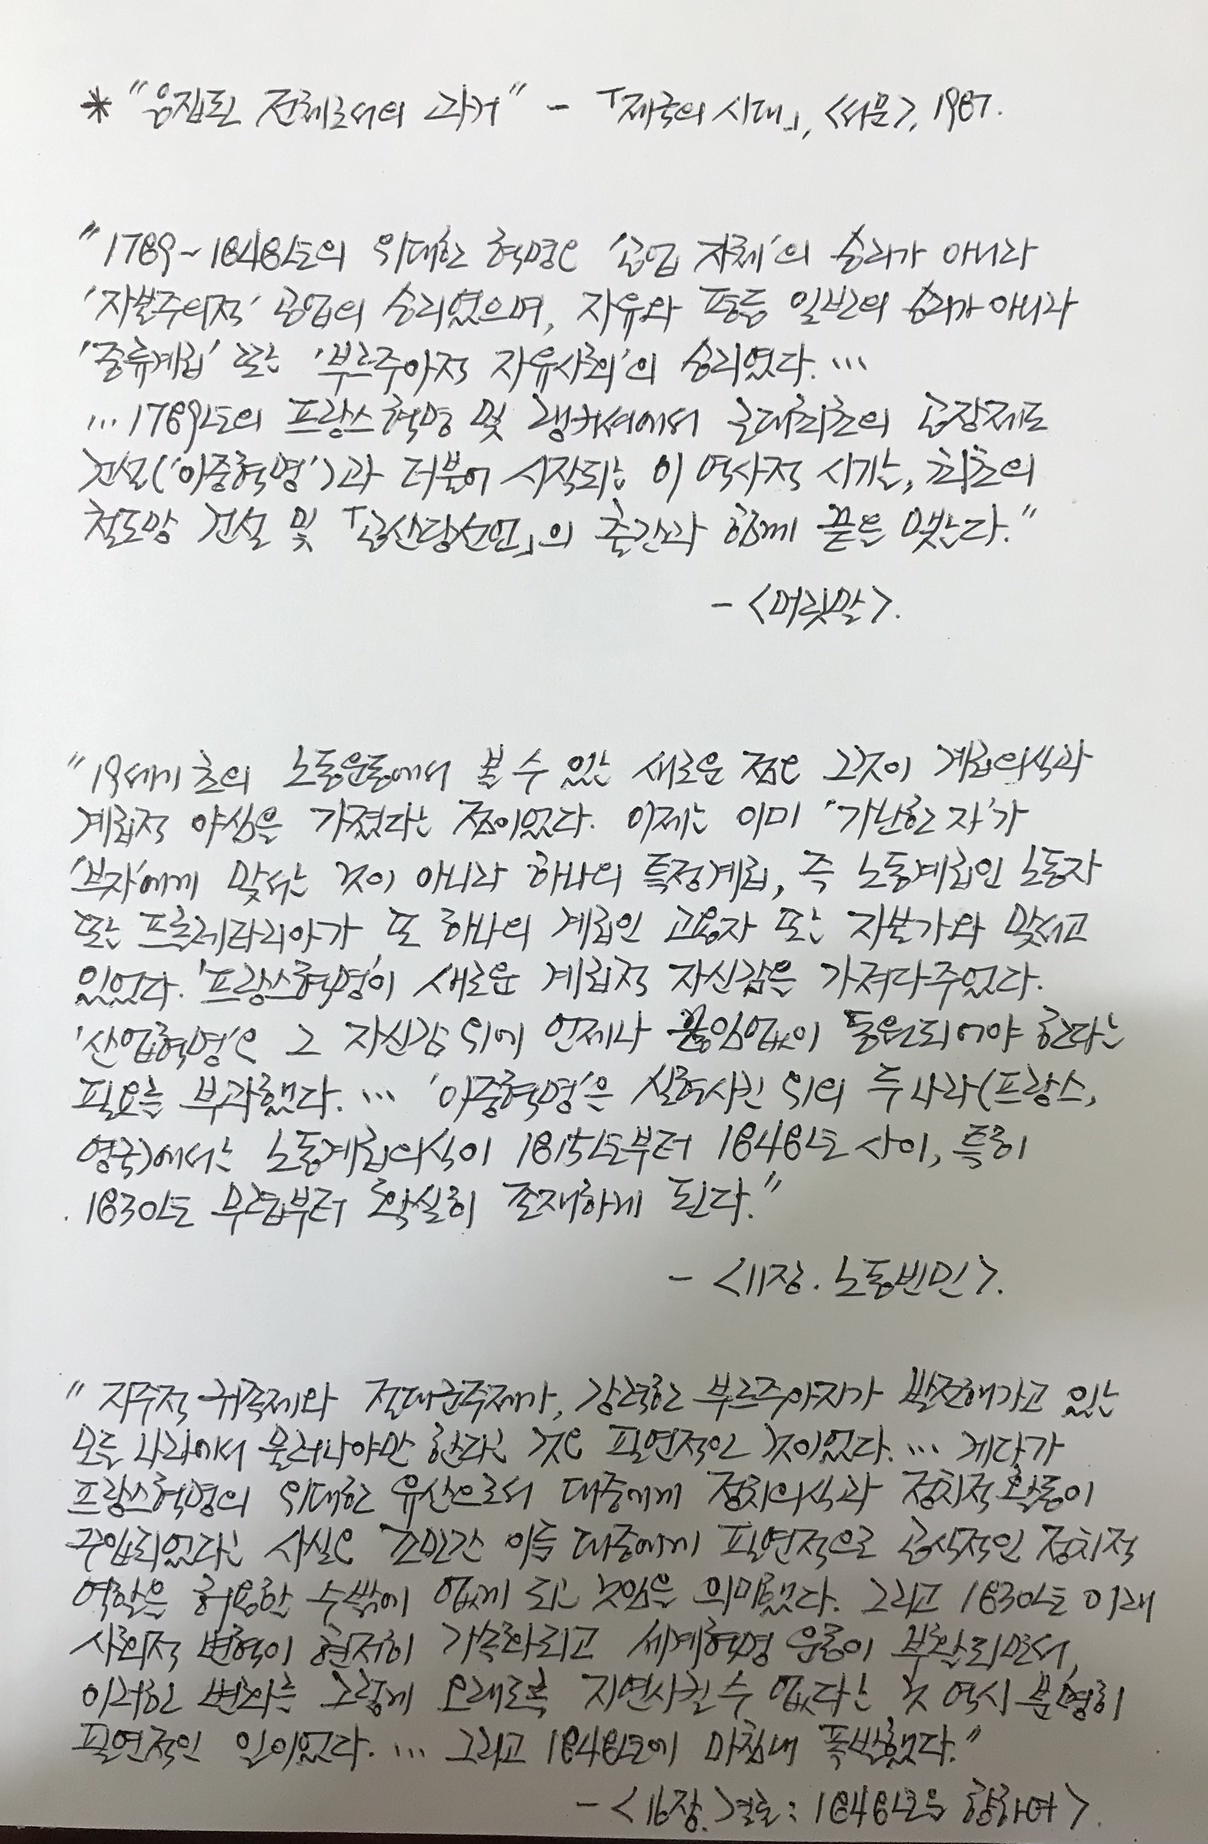 * "응집된 전체로서의 과거" - 「제국의 시대」, <서문>, 1987.
"1789~1848년의 위대한 혁명은 '공업 자체'의 승리가 아니라
'자본주의적' 공업의 승리였으며, 자유와 평등 일반의 승리가 아니라
'중류계급' 또는 '부르주아적 자유사회'의 승리였다. …
… 1789년의 프랑스혁명 및 랭커셔에서 근대최초의 공장제도
건설('이중혁명')과 더불어 시작되는 이 역사적 시기는, 최초의
철도망 건설 및 「공산당선언」의 출간과 함께 끝을 맺는다."
- <머릿말>.
"19세기 초의 노동운동에서 볼 수 있는 새로운 점은 그것이 계급의식과
계급적 야심을 가졌다는 점이었다. 이제는 이미 '가난한 자'가
'부자'에게 맞서는 것이 아니라 하나의 특정계급, 즉 노동계급인 노동자
또는 프롤레타리아가 또 하나의 계급인 고용자 또는 자본가와 맞서고
있었다. '프랑스혁명'이 새로운 계급적 자신감을 가져다주었다.
'산업혁명'은 그 자신감 위에 언제나 끊임없이 동원되어야 한다는
필요를 부과했다. … '이중혁명'을 실현시킨 위의 두 나라(프랑스,
영국)에서는 노동계급의식이 1815년부터 1848년 사이, 특히
1830년 무렵부터 확실히 존재하게 된다."
- <11장. 노동빈민>.
"지주적 귀족제와 절대군주제가, 강력한 부르주아지가 발전해가고 있는
모든 나라에서 물러나야만 한다는 것은 필연적인 것이었다. … 게다가
프랑스혁명의 위대한 유산으로서 대중에게 정치의식과 정치적 활동이
주입되었다는 사실은 조만간 이들 대중에게 필연적으로 공식적인 정치적
역할을 허용할 수밖에 없게 되는 것임을 의미했다. 그리고 1830년 이래
사회적 변혁이 현저히 가속화되고 세계혁명 운동이 부활되면서,
이러한 변화를 그렇게 오래도록 지연시킬 수 없다는 것 역시 분명히
필연적인 일이었다. … 그리고 1848년에 마침내 폭발했다."
- <16장. 결론 : 1848년을 향하여>.